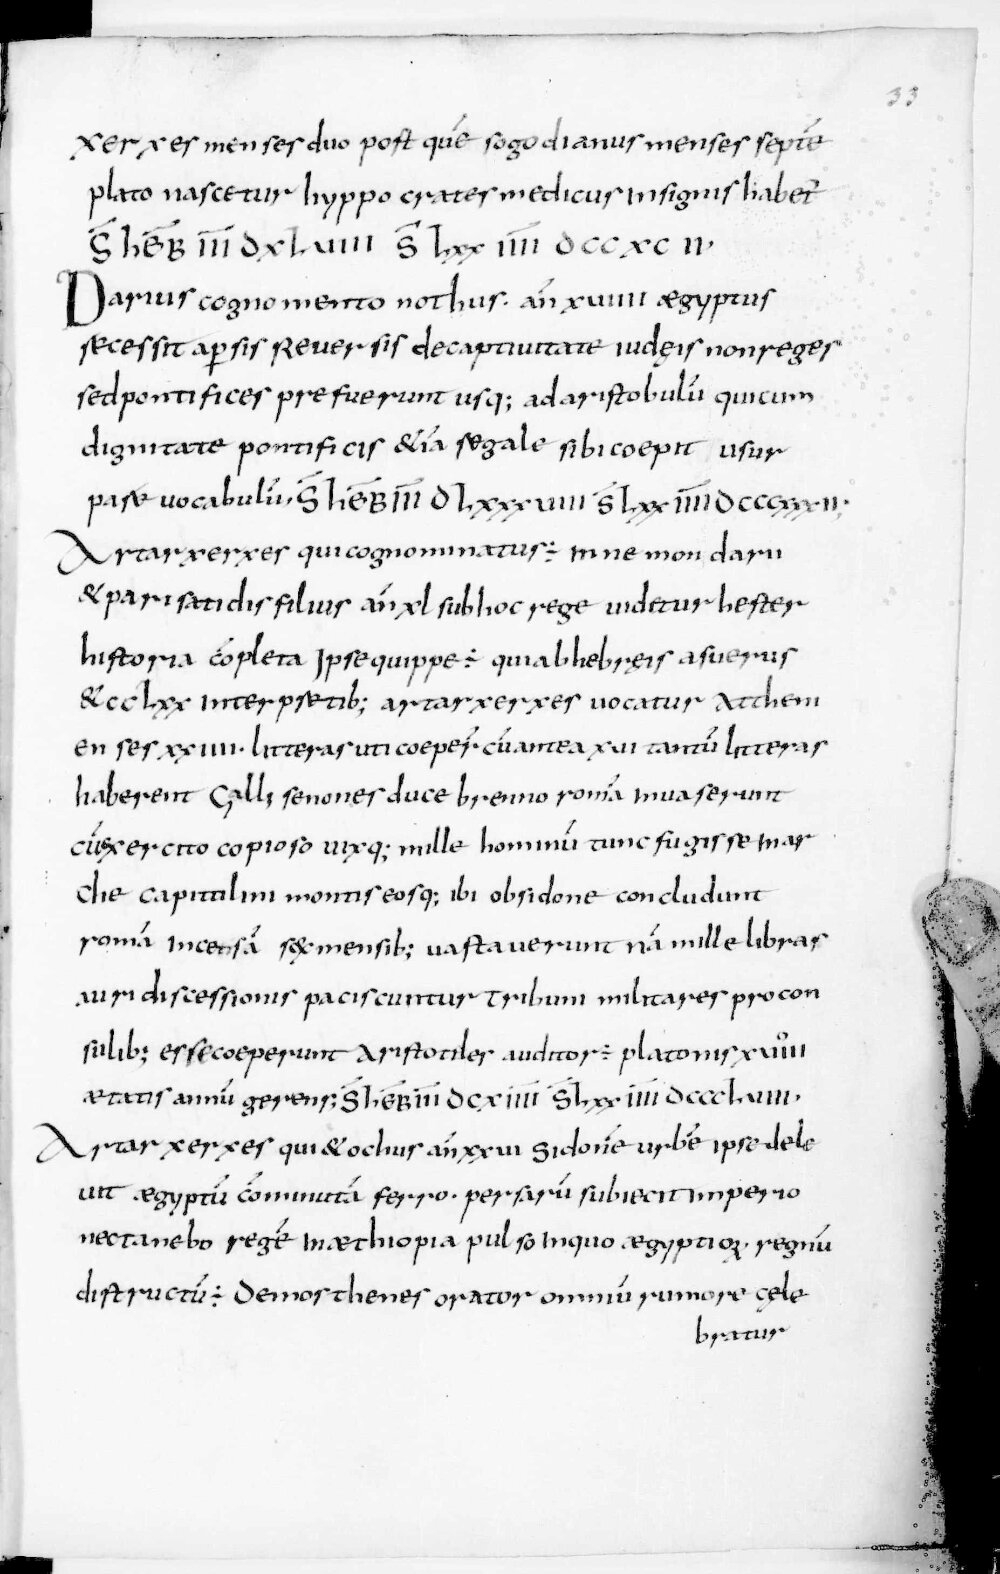 33
xerxes menses duo post quē sogodianus menses septē
plato nascetur hyppocrates medicus insignis habet̄
S̄ hEB̄ I̅I̅I̅ DXLVIIII S̄ LXX I̅I̅I̅I̅ DCCXCII·
Darius cognomento nothus· an̄ xviiii ægyptus
secessit a ꝑsis Reversis de captivitate iudęis non reges
sed pontifices prefuerunt usq; ad aristobulū qui cum
dignitate pontificis &iā regale sibi coepit usur
pare vocabulū· S̄ hEB̄ I̅I̅I̅ DLXXXVIII S̄ LXX I̅I̅I̅I̅ DCCCXXXII·;
Artarxerxes qui cognominatus÷ mnemon darii
& parisatidis filius an̄ xl sub hoc rege videtur hester
historia cōpleta Ipse quippe÷ qui ab hebręis asuerus
& cc lxx interpretib; artarxerxes vocatur Attheni
enses xxiiii· litteras uti coeper̄ cū antea xvi tantū litteras
haberent Galli senones duce brenno romā invaserunt
cū exercito copioso vixq; mille hominū tunc fugisse in ar
che capitilini montis eosq; ibi obsidone concludunt
romā incensā sex mensib; vastaverunt nā mille libras
auri discessionis paciscuntur Tribuni militares pro con
sulib; esse coeperunt Aristotiles auditor÷ platonis xviii
ætatis annū gerens; S̄ hEB̄ I̅I̅I̅ DCXIIII S̄ LXX I̅I̅I̅I̅ DCCCLVIII·
Artarxerxes qui & ochus an̄ xxvi Sidonē urbē ipse dele
vit ægyptū cōmmutā ferro· persarū subiecit imperio
nectanebo regē in æthiopia pulso in quo ægyptioꝝ· regnū
distructū÷ Demosthenes orator omniū rumore cęle
bratur